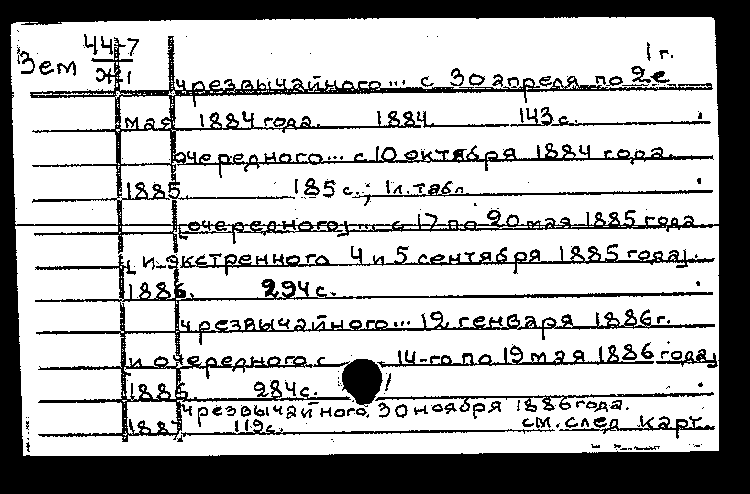 Зем 44-7 1 г.
Ж-1 чрезвычайного... с 30 апреля по 2е
мая 1884 года. 1884. 143 с.
очередного... с 10 октября 1884 года.
1885 185 с.; 1 л. табл.
[очередного] ... с 17 по 20 мая 1885 года
[и экстренного 4 и 5 сентября 1885 года].
1886. 294 с.
чрезвычайного... 12 генваря 1886 г.
[и очередного с 14-го по 19 мая 1886 года]
1886. 284 с.
чрезвычайного, 30 ноября 1886 года.
1887 119 с. см. след карт.